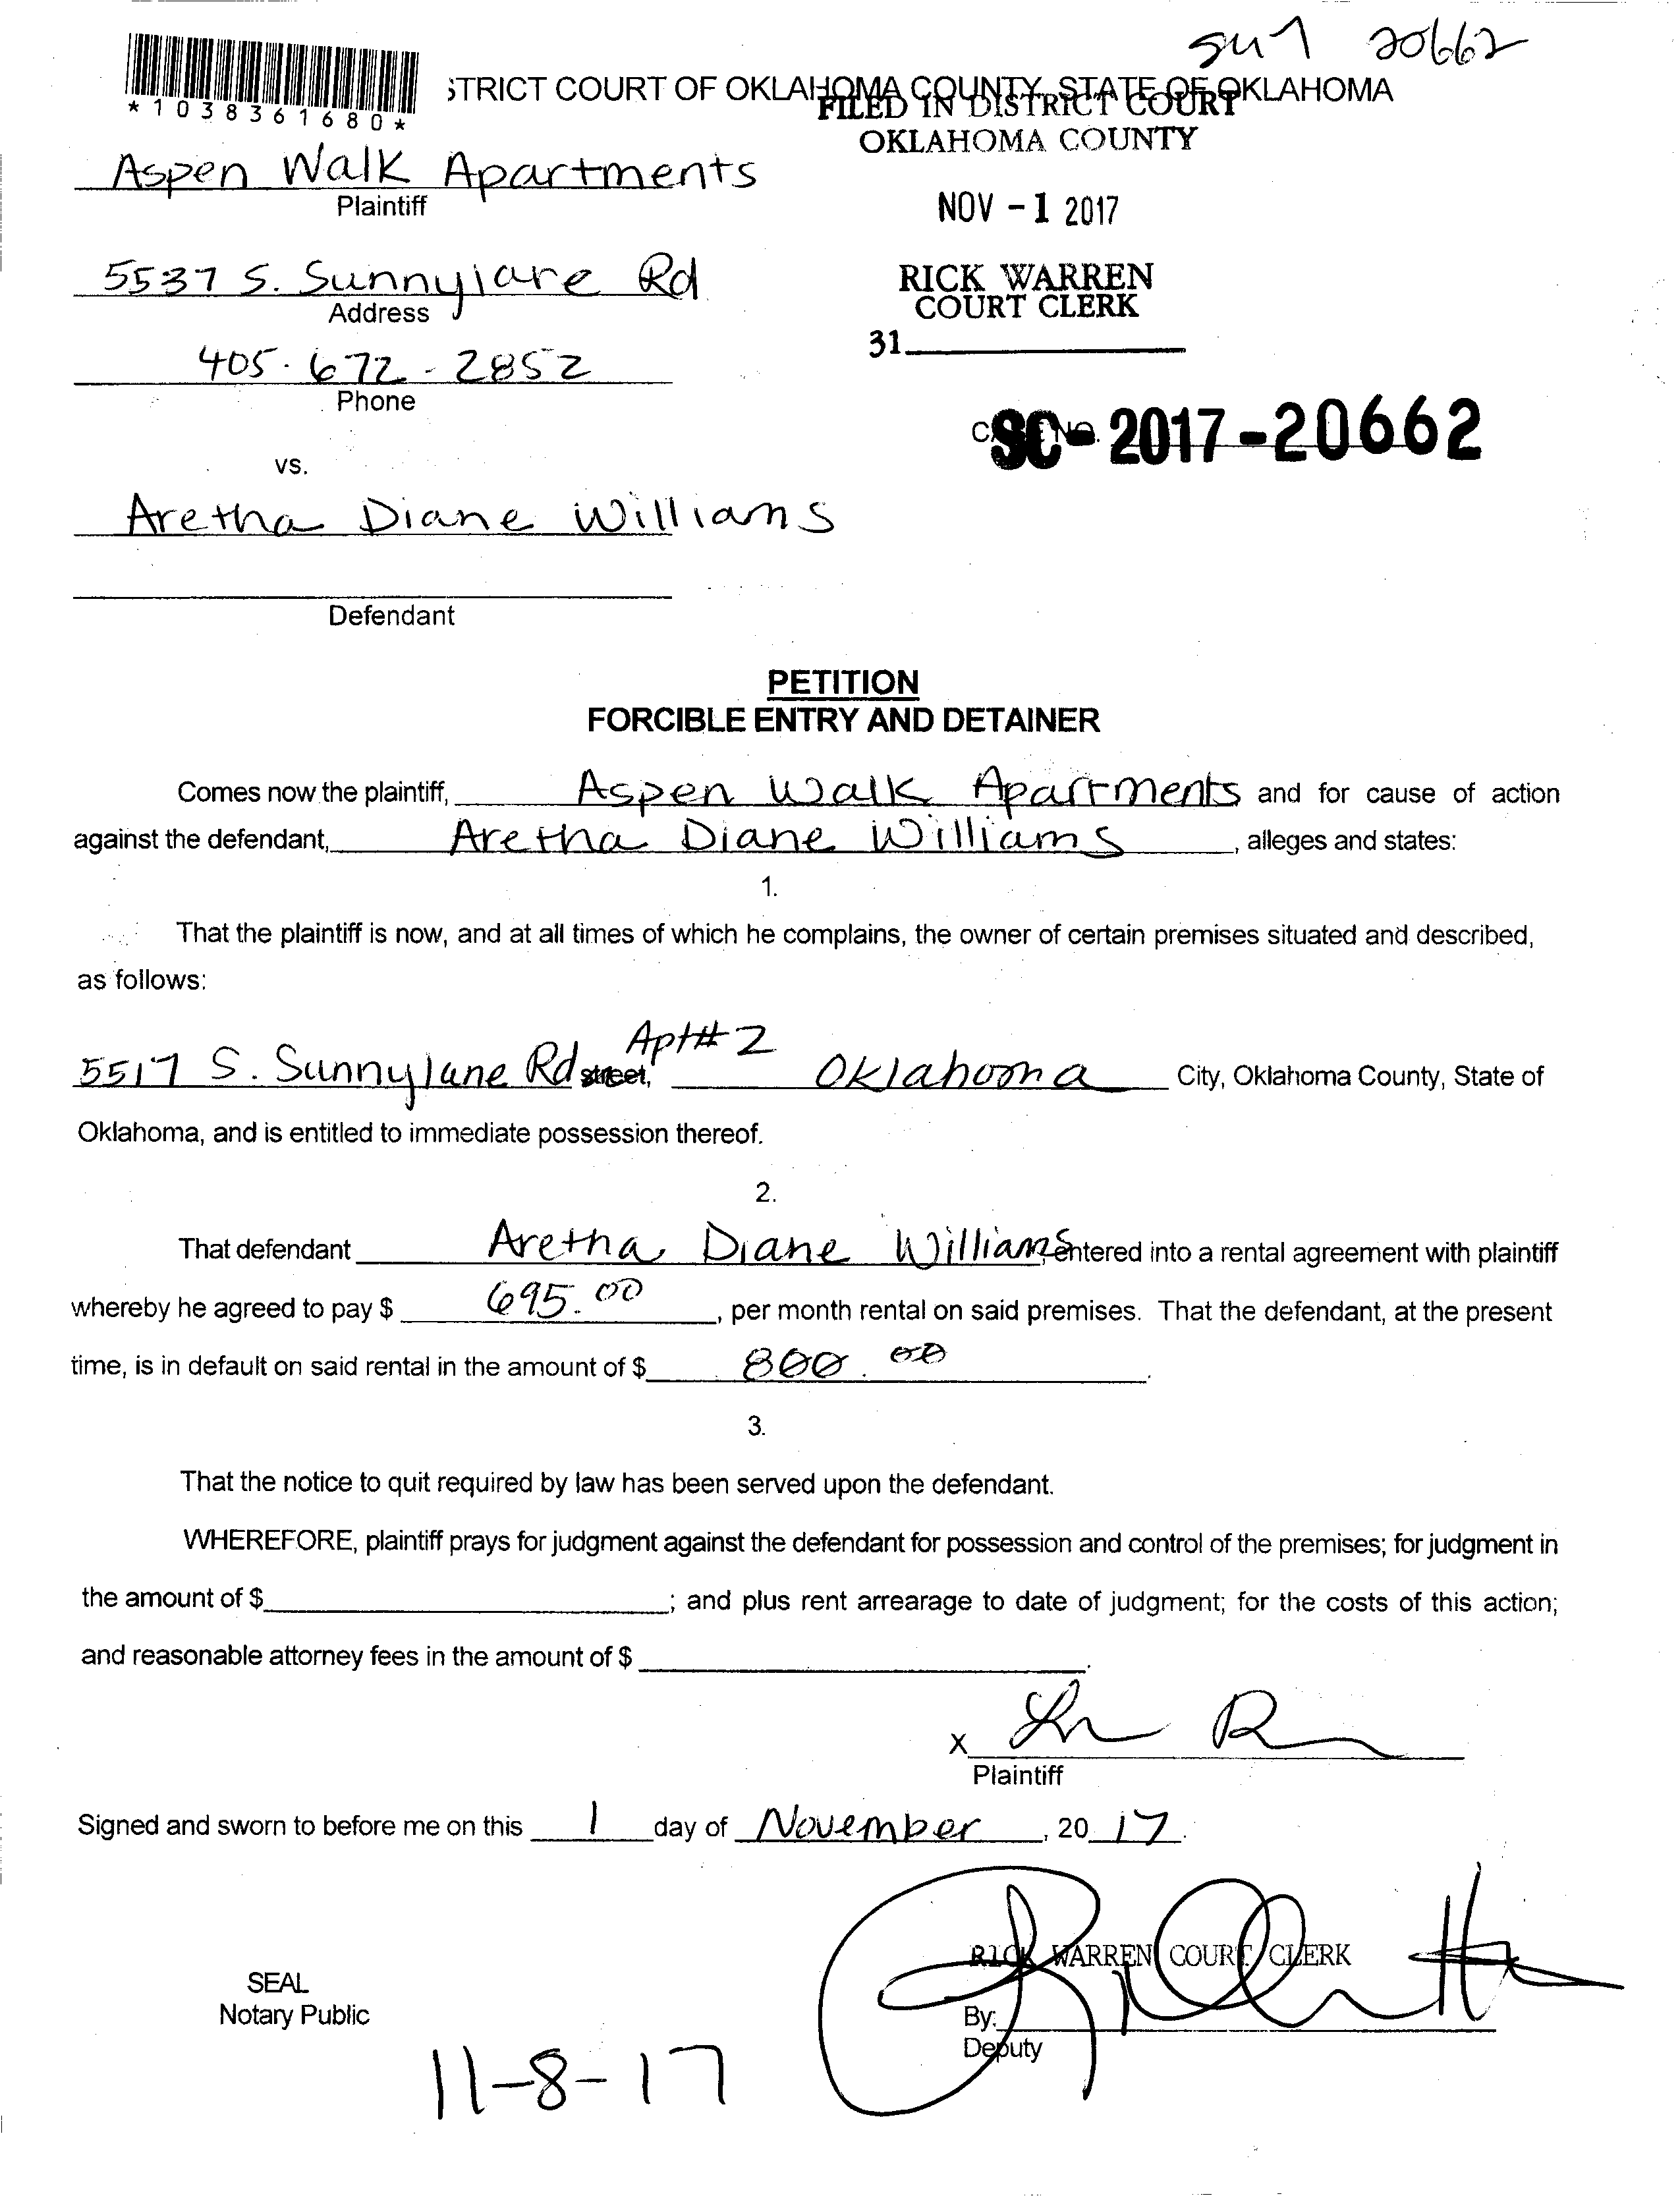 20662
*1038361680*
STRICT COURT OF OKLAHOMA COUNTY, STATE OF OKLAHOMA
FILED IN DISTRICT COURT
OKLAHOMA COUNTY
Aspen Walk Apartments
Plaintiff
NOV - 1 2017
5537 S. Sunnylane Rd
Address
RICK WARREN
COURT CLERK
31
405-672-2852
Phone
SC - 2017 - 20662
vs.
Aretha Diane Williams
Defendant
PETITION
FORCIBLE ENTRY AND DETAINER
Comes now the plaintiff, Aspen Walk Apartments and for cause of action
against the defendant, Aretha Diane Williams, alleges and states:
1.
That the plaintiff is now, and at all times of which he complains, the owner of certain premises situated and described,
as follows:
Apt# 2
5517 S. Sunnylane Rd street, Oklahoma City, Oklahoma County, State of
Oklahoma, and is entitled to immediate possession thereof.
2.
That defendant Aretha Diane Williams, entered into a rental agreement with plaintiff
whereby he agreed to pay $ 695.00, per month rental on said premises. That the defendant, at the present
time, is in default on said rental in the amount of $ 800.00.
3.
That the notice to quit required by law has been served upon the defendant.
WHEREFORE, plaintiff prays for judgment against the defendant for possession and control of the premises; for judgment in
the amount of $ ; and plus rent arrearage to date of judgment; for the costs of this action;
and reasonable attorney fees in the amount of $ .
X
Plaintiff
Signed and sworn to before me on this 1 day of November, 20 17.
RICK WARREN COURT CLERK
SEAL
Notary Public
By:
Deputy
11-8-17